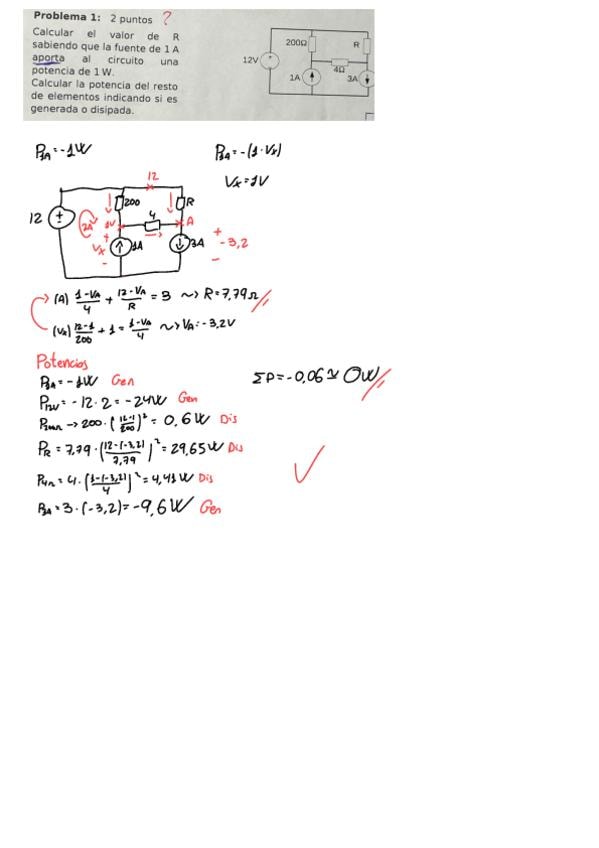 Problema 1: 2 puntos ?
Calcular el valor de R
sabiendo que la fuente de 1 A
aporta al circuito una
potencia de 1 W.
Calcular la potencia del resto
de elementos indicando si es
generada o disipada.
200Ω
R
12V
4Ω
1A
3A
P1A = -1W
P1A = -(1·Vx)
Vx = 1V
12
200
R
12
2A
1V
4
A
Vx
1A
3A
-3,2
(A) (1-VA)/4 + (12-VA)/R = 3 ~> R = 7,79Ω
(Vx) (12-1)/200 + 1 = (1-VA)/4 ~> VA = -3,2V
Potencias
P1A = -1W Gen
P12V = -12·2 = -24W Gen
P200Ω → 200·((12-1)/200)² = 0,6W Dis
PR = 7,79·((12-(-3,2))/7,79)² = 29,65W Dis
P4Ω = 4·((1-(-3,2))/4)² = 4,41W Dis
P3A = 3·(-3,2) = -9,6W Gen
ΣP = -0,06 ≃ 0W